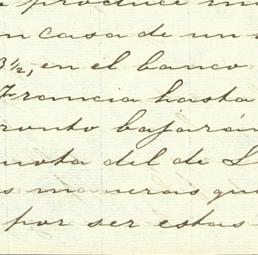 produce m
n casa de un
3½, en el banco
Francia hasta
ronto bajarán
nota del de L
s maneras qu
por ser estas